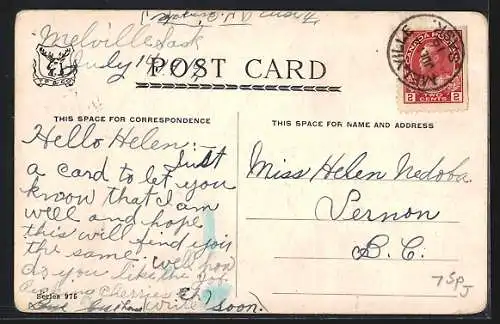 Melville Sask
July 14
POST CARD
THIS SPACE FOR CORRESPONDENCE
THIS SPACE FOR NAME AND ADDRESS
CANADA POSTAGE
2 CENTS 2
Hello Helen:- Just
a card to let you
know that I am
well and hope
this will find you
the same. well how
do you like the
cherries
write soon.
Series 976
Miss Helen Nedoba
Vernon
B.C.